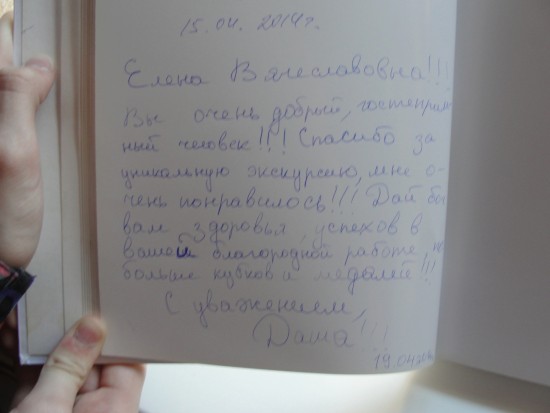 15.04.2014г.
Елена Вячеславовна!!!
Вы очень добрый, гостеприим
ный человек!!! Спасибо за
уникальную экскурсию, мне о-
чень понравилось!!! Дай бог
вам здоровья, успехов в
вашей благородной работе,
больше кубков и медалей!!!
С уважением,
Даша!!!